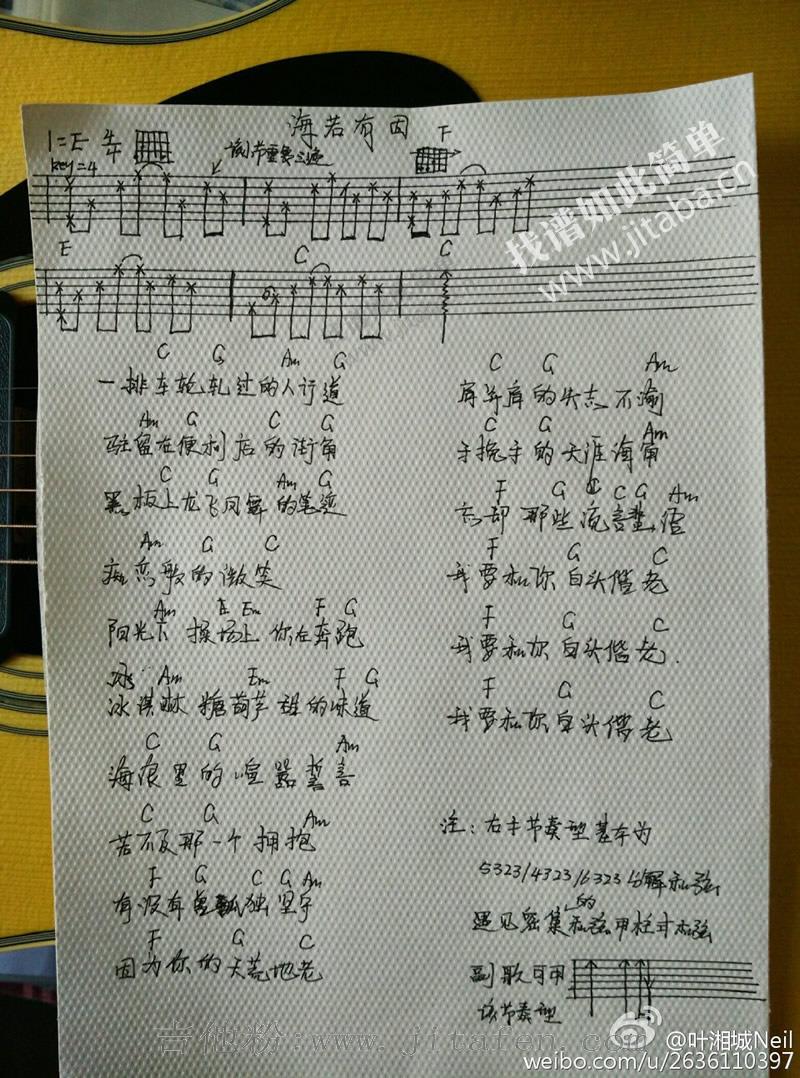 海若有因
1=E 4/4
key=4
该节重要三遍
F
E C C
C G Am G
一排车轮轧过的人行道
Am G C G
驻留在便利店的街角
C G Am G
黑板上龙飞凤舞的笔迹
Am G C
痴恋般的微笑
Am E Em F G
阳光下操场上你在奔跑
Am Em F G
冰淇淋 糖葫芦 甜的味道
C G Am
海浪里的喧嚣誓言
C G Am
若不及那一个拥抱
F G C G Am
有没有 孤独坚守
F G C
因为你的天荒地老
C G Am
肩并肩的矢志不渝
C G Am
手挽手的天涯海角
F G C C G Am
忘却那些流言蜚语
F G C
我要和你白头偕老
F G C
我要和你白头偕老.
F G C
我要和你白头偕老
注:右手节奏型基本为
5323/4323/6323分解和弦
遇见密集的和弦用柱式和弦
副歌可用
该节奏型
找谱如此简单
www.jitaba.cn
吉他粉:www.jitafen.com
@叶湘城Neil
weibo.com/u/2636110397